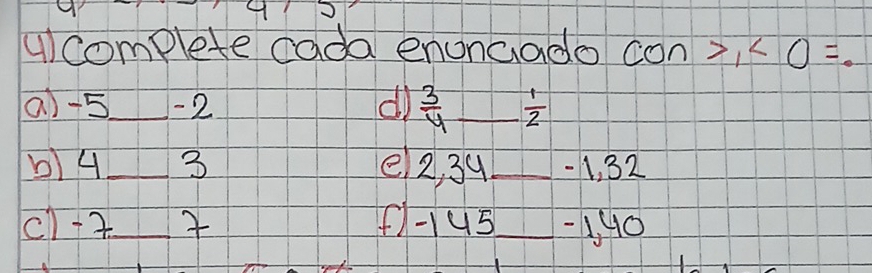 4) complete cada enunciado con >,< O =.
a) -5 ___ -2
d) 3/4 ___ 1/2
b) 4 ___ 3
e) 2,34 ___ -1,32
c) -7 ___ 7
f) -145 ___ -1,40